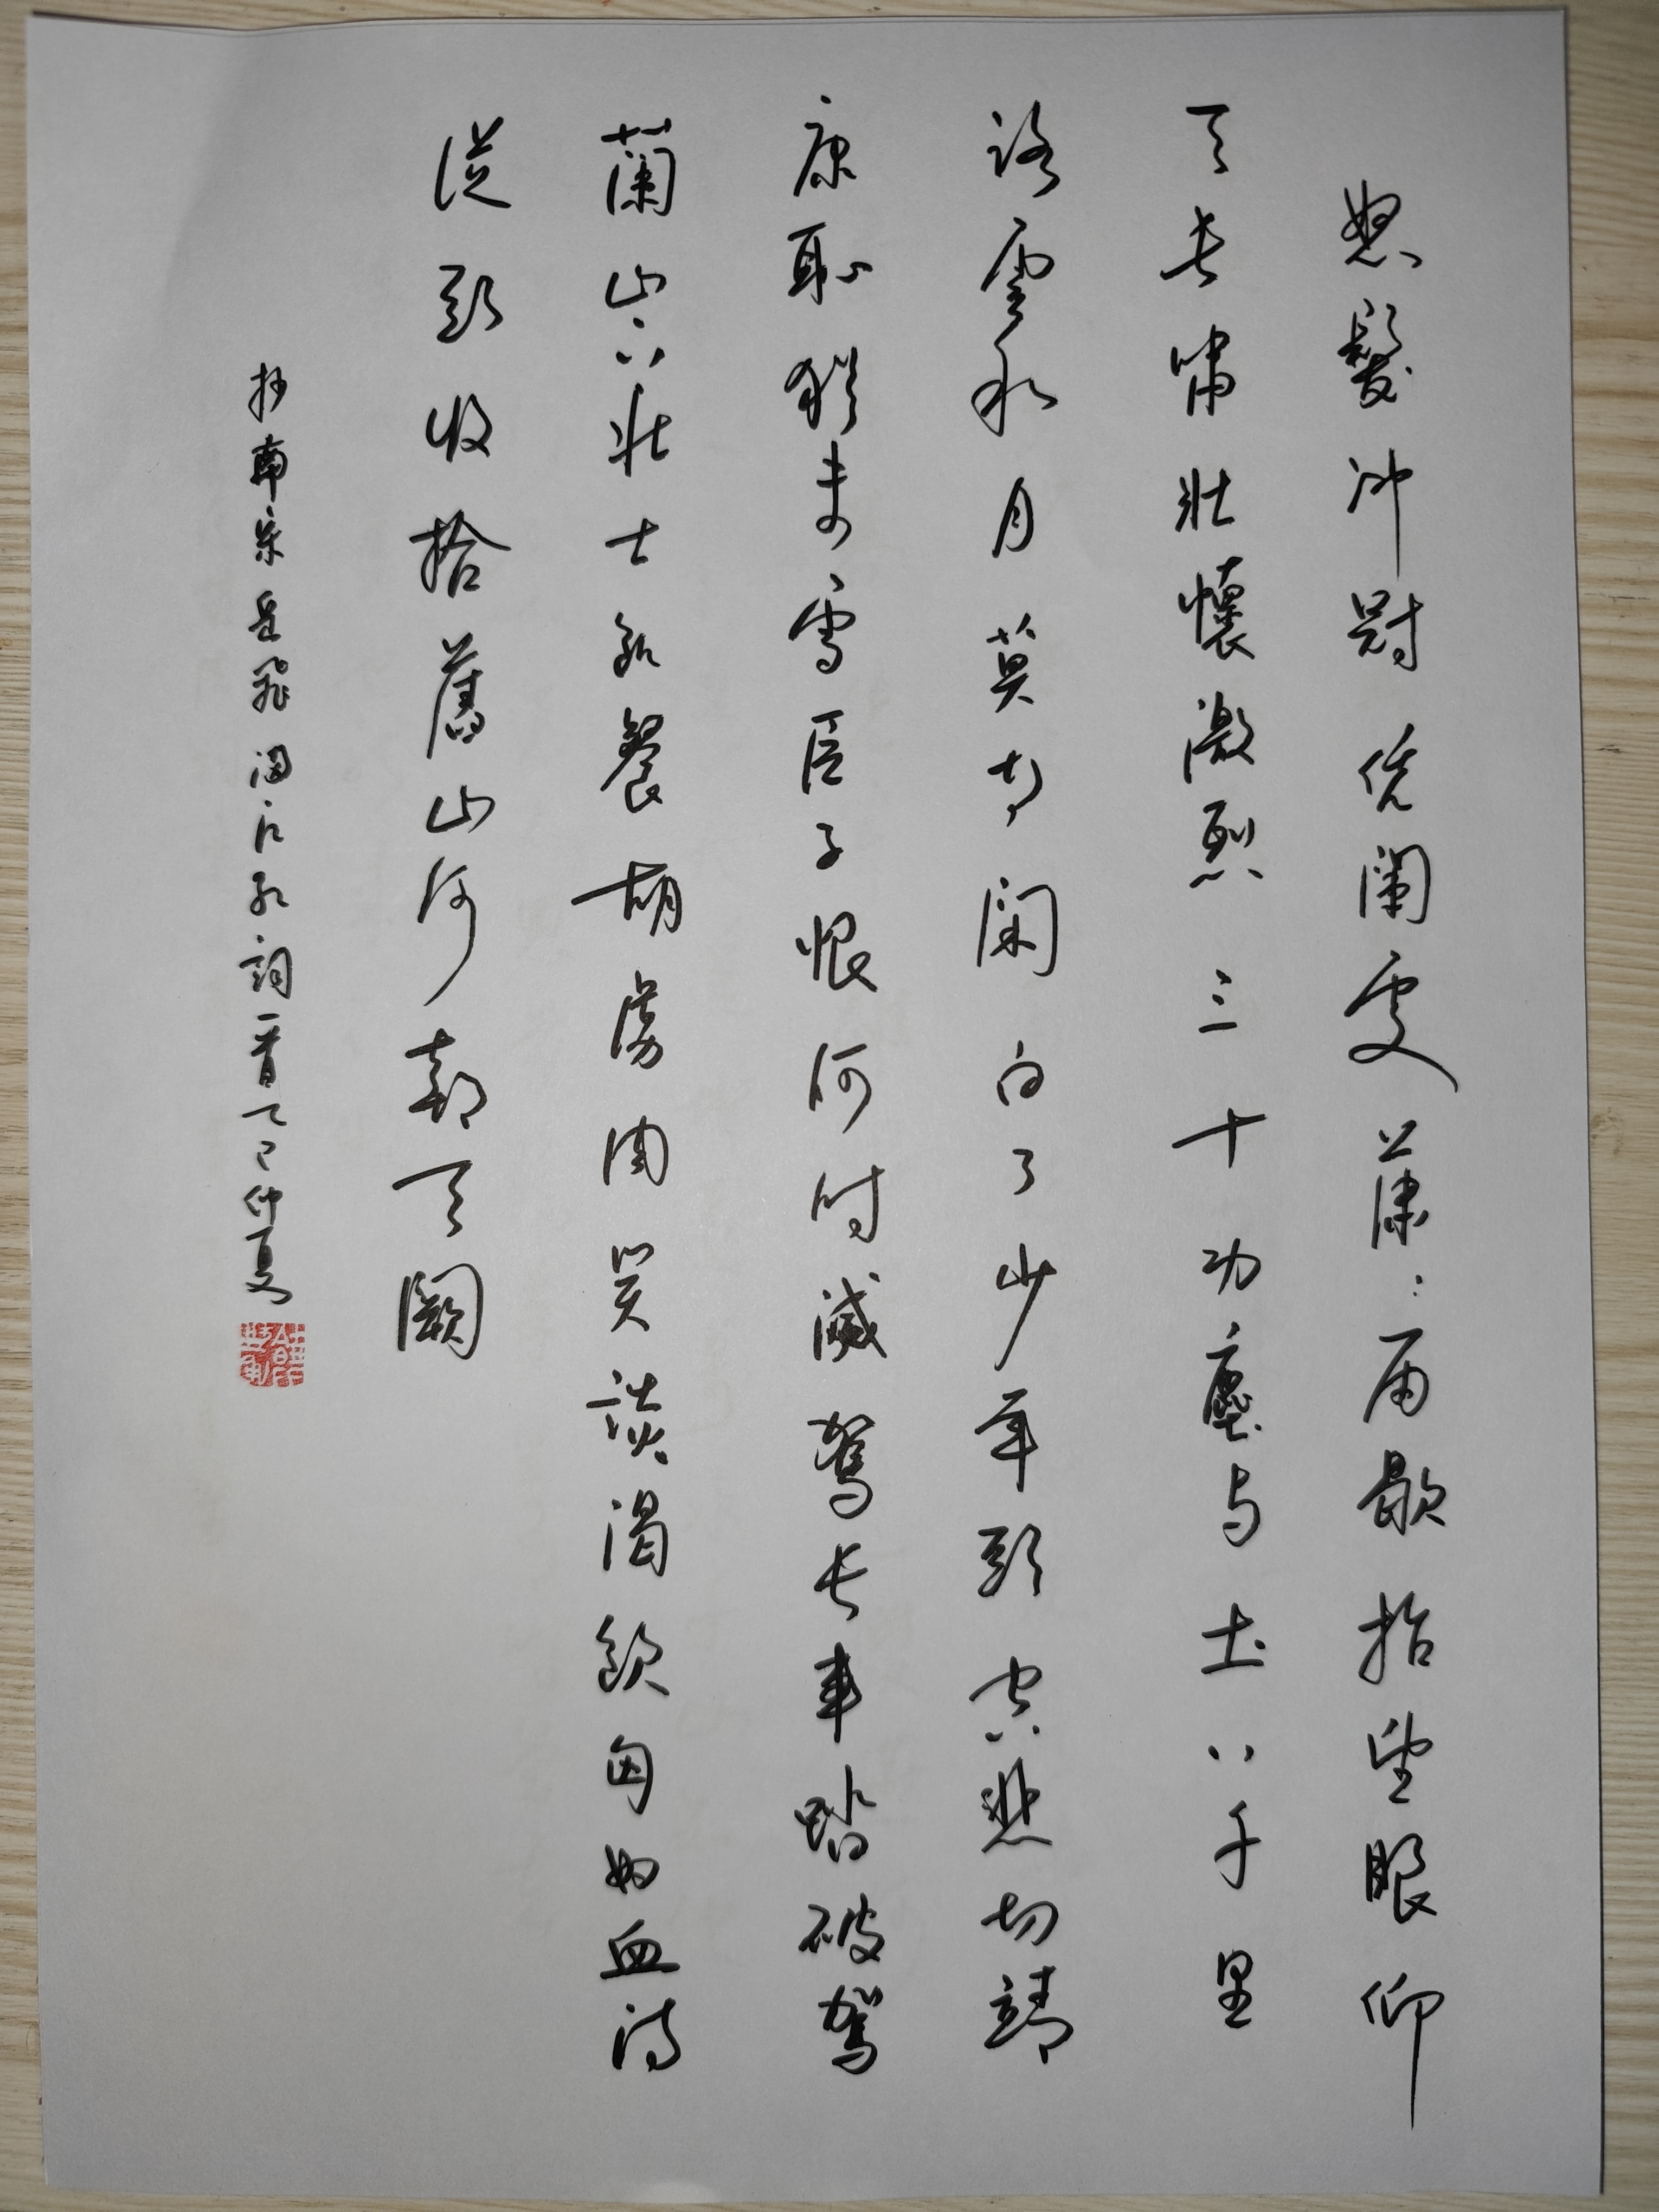 怒髮沖冠凭闌處蕭:雨歇抬望眼仰
天長嘯壯懷激烈三十功塵与土八千里
路雲和月莫等閑白了少年頭空悲切靖
康恥猶未雪臣子恨何時滅駕長車踏破駕
蘭山六壯士飢餐胡虜肉笑談渴飲匈奴血待
從頭收拾舊山河朝天闕
抄南宋岳飛滿江紅詞一首乙巳仲夏